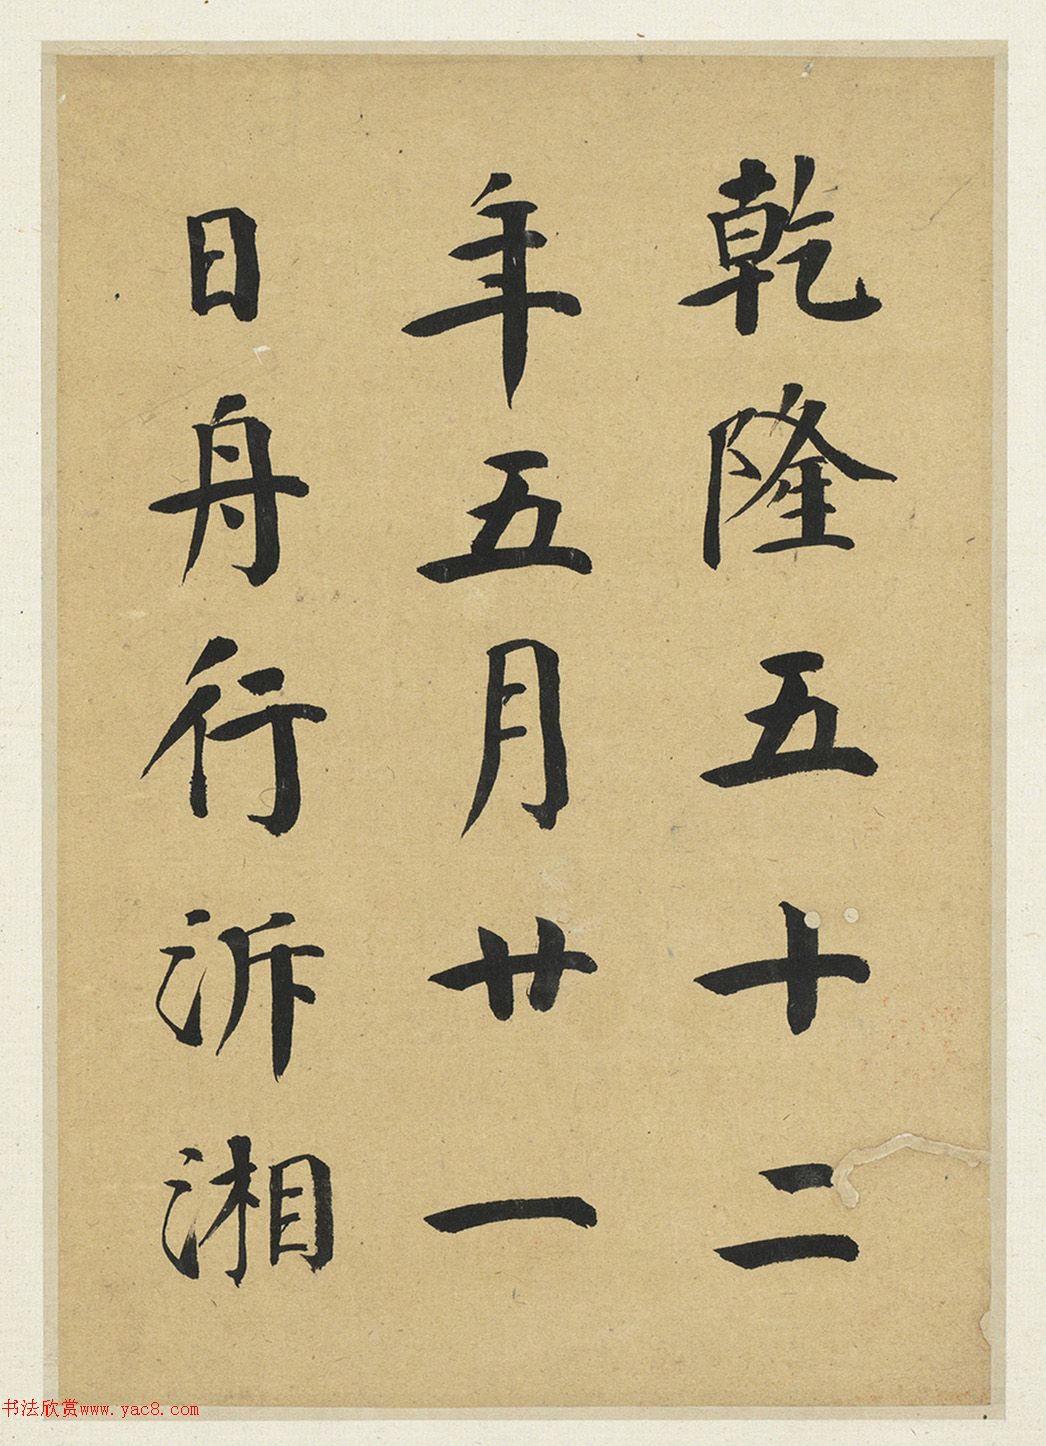 乾隆五十二
年五月廿一
日舟行泝湘
书法欣赏www.yac8.com